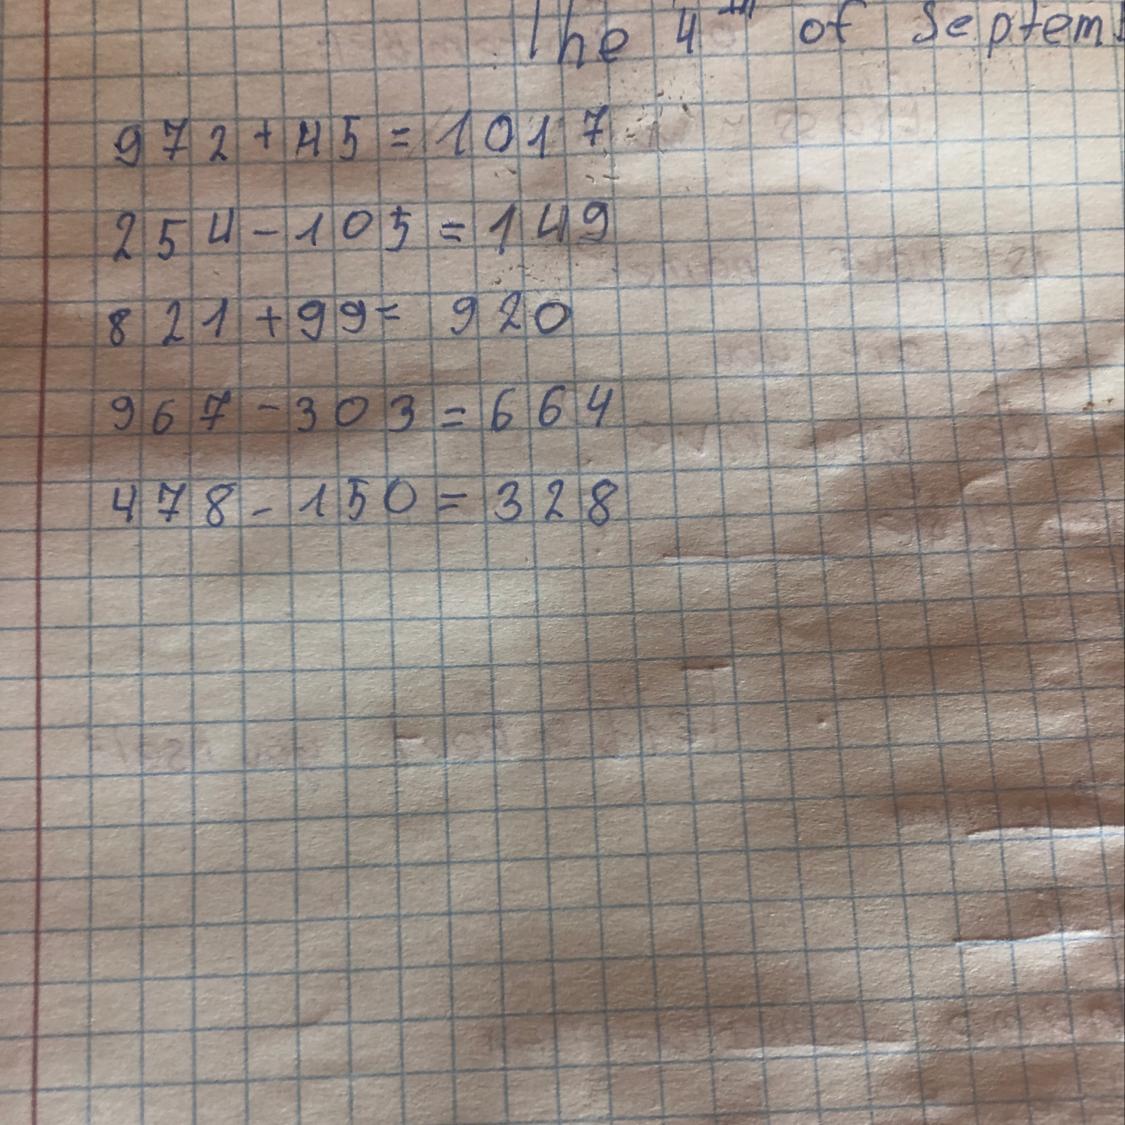 The 4th of Septem
972+45=1017
254-105=149
821+99= 920
967-303=664
478-150=328